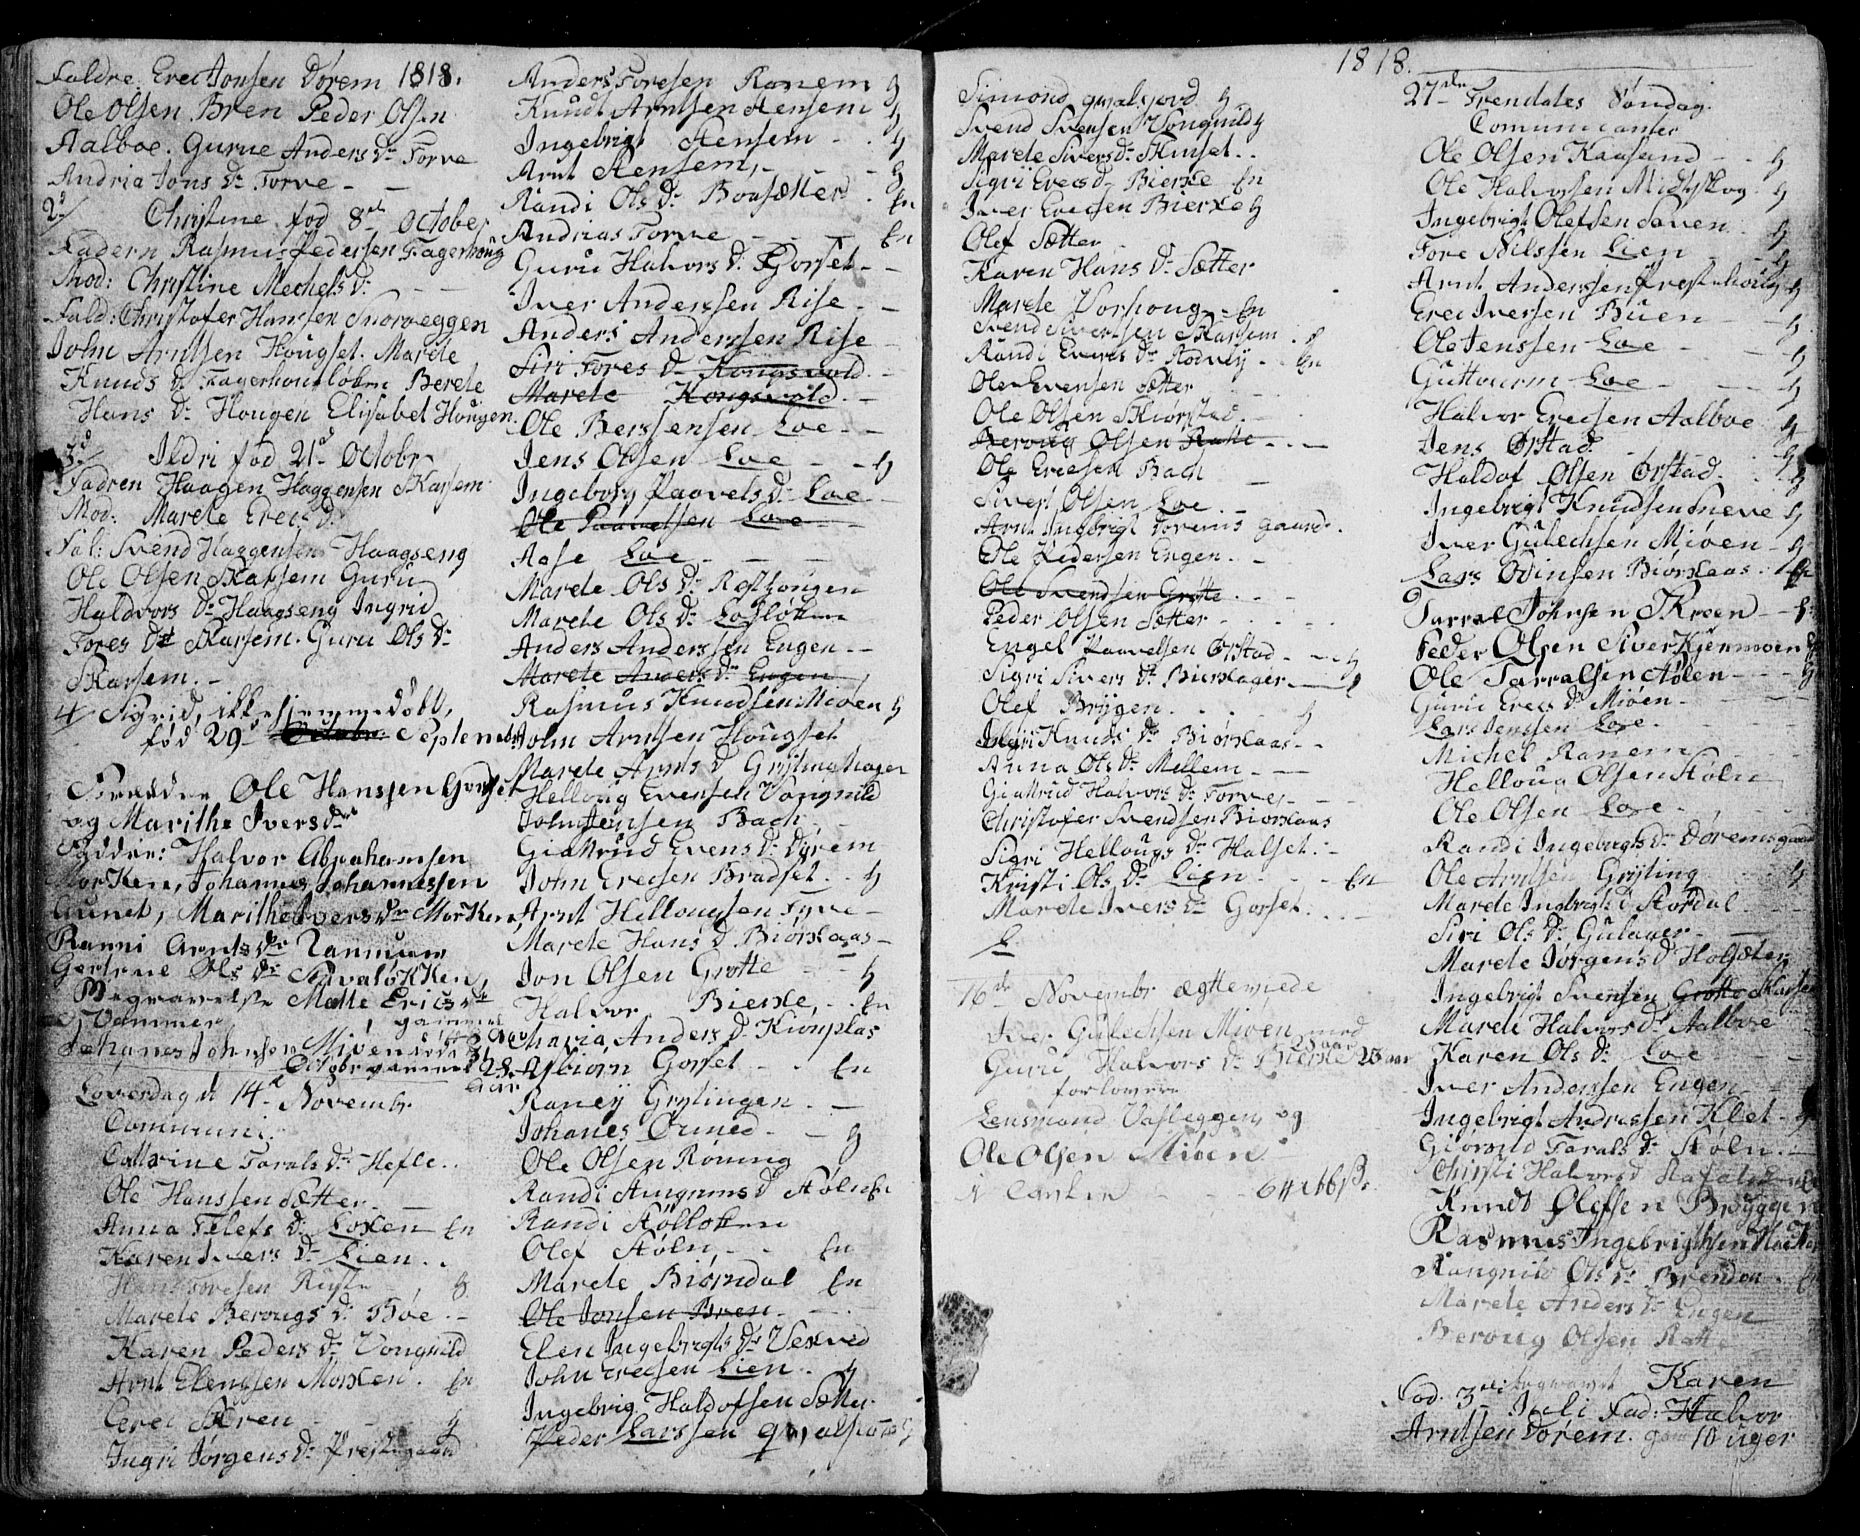 Faldre. Erec Jonsen Dørem 1818.
Ole Olsen Bren Peder Olsen
Aalboe. Gurue Anders Dr Torve
Andria Jons Dr Torve - -
2d/ Christine fød 8de October
Fadern Rasmus Pedersen Fagerhoug
Mod: Christine Mechels Dr
Fald: Christofer Hanssen Snorveggen
John Arntsen Hougset. Marete
Knuds Dr Fagerhoug Berete
Hans Dr Hougen Elisabet Hougen.
3d/ Ildri fød 21d Octobr
Fadren Haagen Haggensen Skarsem
Mod: Marete Erecs Dr
Fal: Svend Haggensen Haagseng
Ole Olsen Skarsem Guru
Haldvors Dr Haagseng Ingrid
Tores Dr Skarsem. Guru Ols Dr
Skarsem. -
4/ Sigrid, ikke hjemmedøbt,
fød 29d Octobr. September
Forældre Ole Hanssen Gorset
og Marithe Ivers dr
Fadder: Halvor Abrahamsen
Morken, Johannes Johannessen
Aunet, Marithe Ivers dr Morken,
Ranni Arnts dr Tamnum
Gertrue Ols dr
Begravelse Mette Erics dr
Vammer gammel
Johanes Johnsen Miøen
Octobr gammel 28
aar
Løverdag d 14de Novembr
Communi.
Cathrine Tarals Dr Hefle..
Ole Hanssen Sætter -
Anna Telefs Dr Loxen En
Karen Ivers Dr Lien..
Hans Toresen Reise 8
Marete Berougs Dr Bøe -
Karen Peders Dr Vongnild
Arnt Elengsen Morken. En
Erec Bren - - - 4
Ingri Jørgens Dr Prestegaard
Anders Toresen Ranem 4
Knudt Arntsen Stensem 4
Ingebrigt Stensem - - 4
Arnt Stensem, - - - 4
Randi Ols Dr Boasætter. En
Andrias Torve - - - En
Guru Halvors Dr Gorset - -
Iver Anderssen Rise - -
Anders Anderssen Rise -
Siri Tores Dr Kongsvold -
Marete Kongsvold. -
Ole Berssensen Loe - -
Jens Olsen Loe - - 4
Ingeborg Paavels Dr Loe -
Ole Paavelsen Loe -
Aase Loe - - -
Marete Ols Dr Rosthougen
Marete Ols Dr Losløkken
Anders Anderssen Engen - -
Marete Anders Dr Engen
Rasmus Knudsen Miøen 4
John Arntsen Hougset
Marete Arnts D Grytinghagen
Helloug Evensen Vongnild
John Jensen Bach -
Giertrud Evens Dr Dørem
John Erecsen Bradset. - 4
Arnt Hellougsen Tyve -
Marete Hans D Biørkaas -
Jon Olsen Grøtte - - 4
Halvor Bierke, - - En
Maria Anders D Kiønplas
Asbiørn Gorset - - En
Raney Grytingen. -
Johanes Ormed - - 4
Ole Olsen Røning
Randi Amgrims D Støln En
Randi Støllokken
Olef Støln, - - En
Marete Biørndal En
Ole Jonsen Bren - -
Elen Ingebrigts Dr Vexved
John Erecsen Lien. - 4
Ingebrig Haldofsen Sætter.
Peder Larssen
1818.
Simond 4
Svend Svensen Vongnild 4
Marete Sivers Dr Skinset..
Sigri Erecs Dr Bierke En
Iver Erecsen Bierke 4
Olef Sætter -
Karen Hans Dr Sætter
Marete Vorhoug - En
Svend Sivertsen Skarsem.
Randi Evens Dr Rodvey. - En
Ole Evensen Sætter -
Ole Olsen Skiorstad - -
Beroug Olsen Ratte - . -
Ole Erecsen Bach -
Sivert Olsen Loe. -
Arnt Ingebrigt Dørems gaard.
Ole Pedersen Engen. -
Ole Svendsen Grøtte. - -
Peder Olsen Sætter - - -
Engel Paavelsen Ørstad - - 4
Sigri Sivers Dr Bierkager
Olef Brygen. . . . 4
Ingri Knuds Dr Biørkaas - -
Anna Ols Dr Mellem - -
Giertrud Halvors Dr Torve - -
Christofer Svendsen Biorkaas
Sigri Hellougs Dr Halset. -
Kristi Ols Dr Lien - - - En
Marete Ivers Dr Gorset. . . -
16de Novembr ægteviede
Iver Gulechsen Miøen med
25 aar
Guru Halvors Dr Bierke 23 aar
forlovere
Lensmand Vasleggen og
Ole Olsen Miøen
27de Trendates Søndag.
Comunicanter
Ole Olsen Kaasund - - 4
Ole Halvorsen Midtskog 4
Ingebrigt Olefsen Saven. 4
Tore Nilssen Lien - - 4
Arnt Anderssen Prestehoug 4
Erec Iversen Buen - - 4
Ole Jenssen Loe - - 4
Guttourm Loe - - - 4
Halvor Erecsen Aalboe 4
Jens Ørstad. - - - 4
Haldof Olsen Ørstad. . 4
Ingebrigt Knudsen Sneve 4
Iver Gulechsen Miøen - 4
Lars Odinsen Biørkaas. En
Tarral Johnsen Skreen - 4
Peder Olsen Siver Kjernmoen
Ole Tarralsen Stølen - - 4
Guru Erecs Dr Miøen -
Lars Jenssen Loe.
Michel Ranem
Helloug Olsen Støln
Ole Olsen Loe -
Randi Ingebrigts Dr Døremsgaard
Ole Arntsen Gryting 4
Marete Ingebrigts D Stordal
Siri Ols Dr Gulager - -
Marete Jørgens D Holsæter
Ingebrigt Svensen Grøtte Skarsem
Marete Halvors Dr Aalboe -
Karen Ols Dr Loe -
Iver Anderssen Engen
Ingebrigt Andressen Klet - 4
Giørond Tarals Dr Støln. -
Christi Halvors D
Knudt Olefsen Bryggen
Rasmus Ingebrightsen
Rangnild Ols Dr Brendan. En
Marete Anders Dr Engen
Beroug Olsen Ratte
begravet Karen
Fød. 3de Juli fad: Halvor
Arntsen Dørem. gam 10 uger